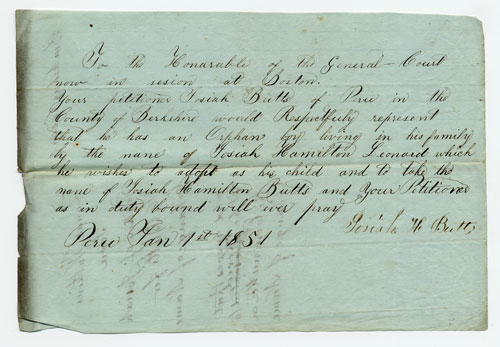 To the Honarable of the General-Court
now in sesion at Boston.
Your petitione Josiah Butts of Peru in the
County of Berkshire would Respectfuly represent
that he has an Orphan boy living in his family
by the name of Josiah Hamilton Leonard which
he wishes to adopt as his child and to take the
name of Josiah Hamilton Butts and Your Petitioner
as in duty bound will ever pray
Josiah H Butts
Peru Jan 1st 1851